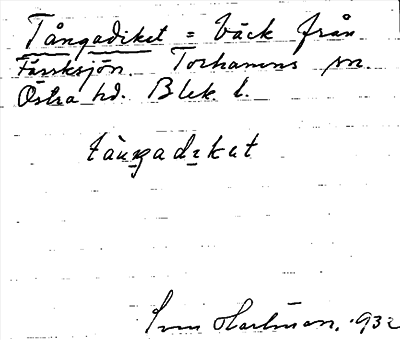 Tångadiket = bäck från
Färsksjön. Torhamns sn.
Östra hd. Blek. l.
tåŋgadɪkət
Sven Hartman, 1932